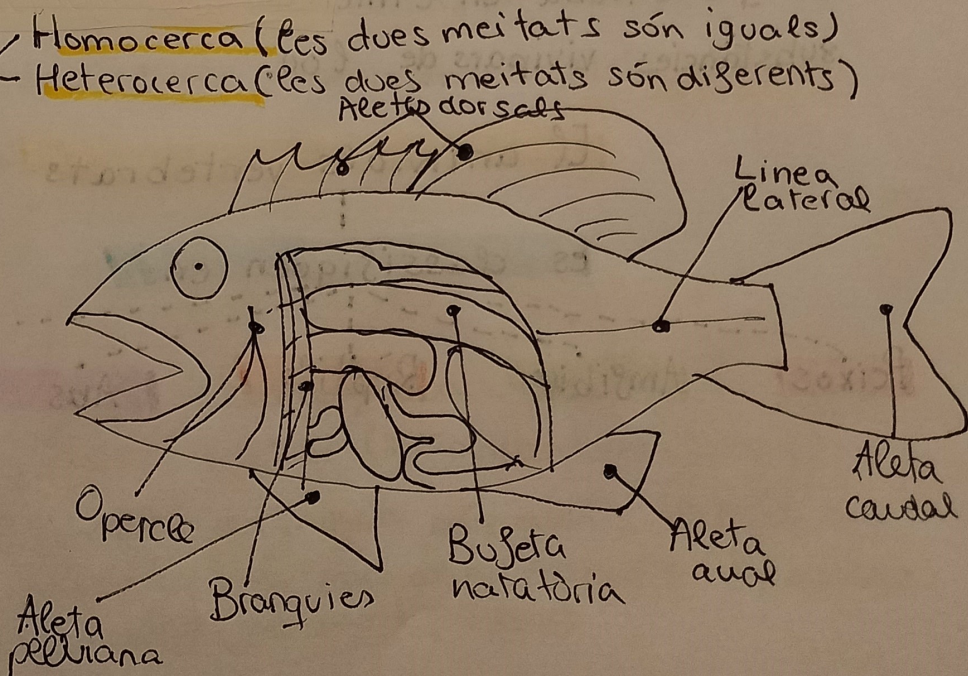 - Homocerca (les dues meitats són iguals)
- Heterocerca (les dues meitats són diferents)
Aletes dorsals
Linea
lateral
Aleta
caudal
Opercle
Bufeta
natatòria
Aleta
anal
Branquies
Aleta
pelviana